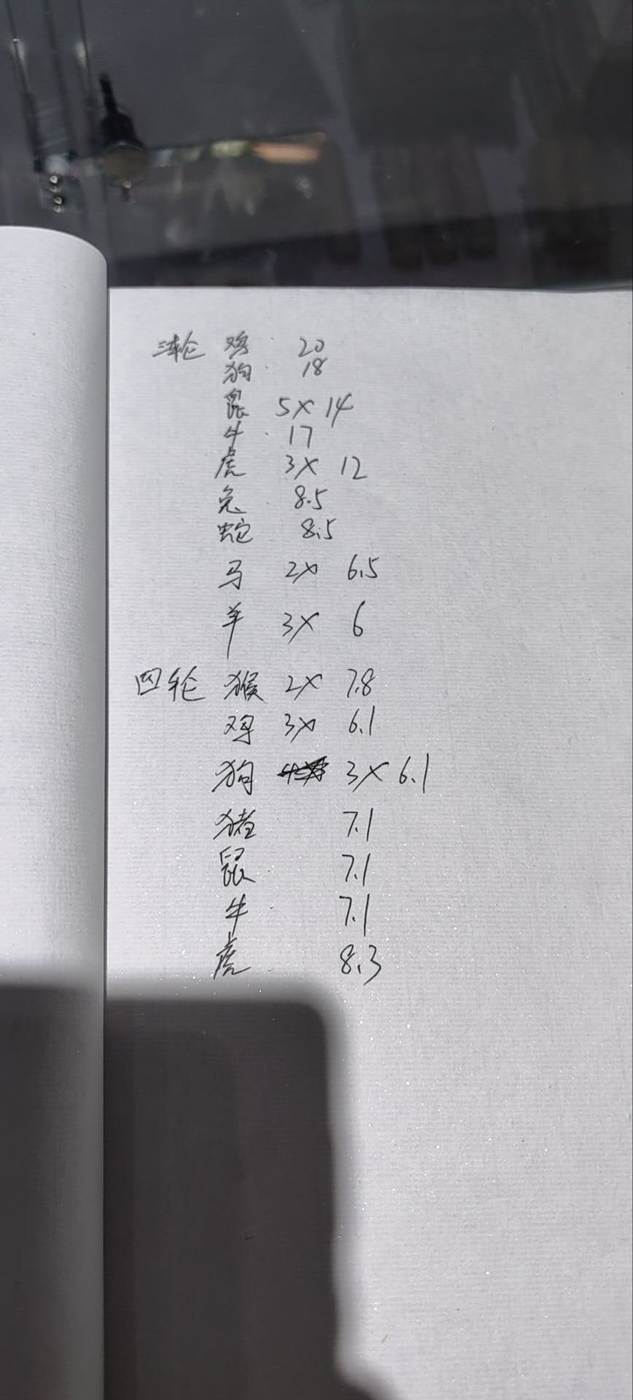 三轮 鸡 20
狗 18
鼠 5X 14
牛 17
虎 3X 12
兔 8.5
蛇 8.5
马 2X 6.5
羊 3X 6
四轮 猴 2X 7.8
鸡 3X 6.1
狗 3X 6.1
猪 7.1
鼠 7.1
牛 7.1
虎 8.3